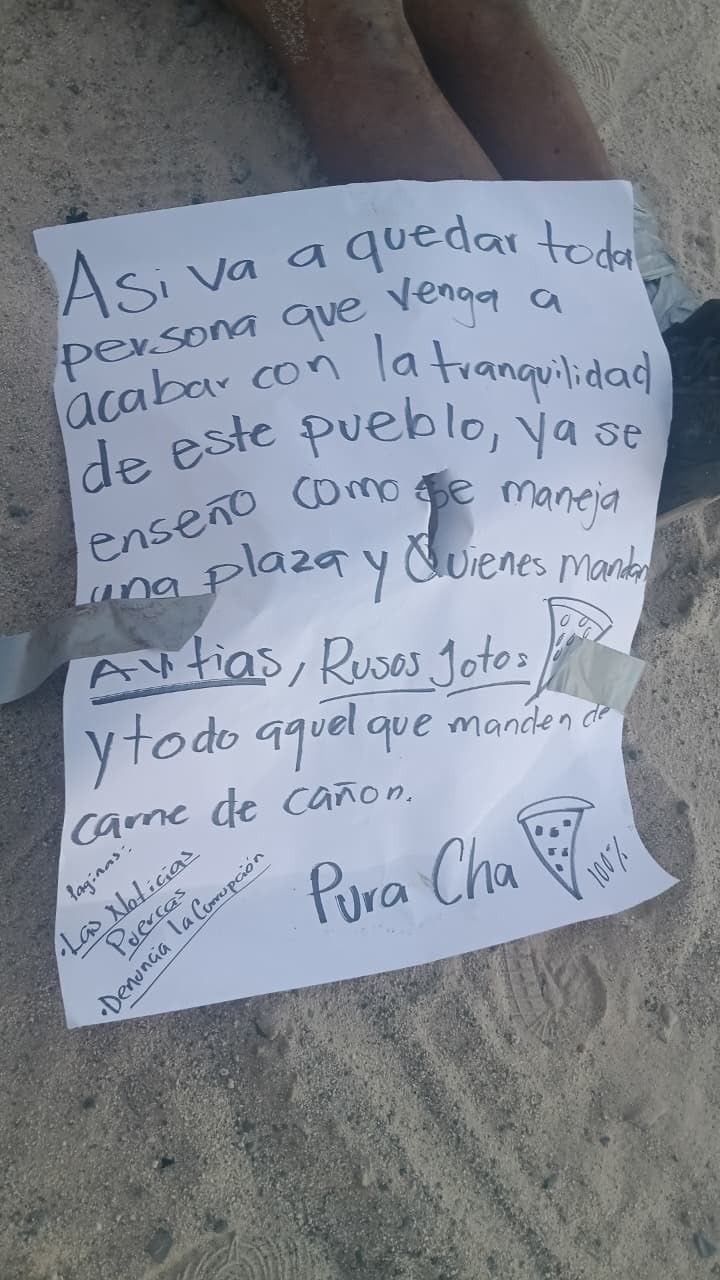 Asi va a quedar toda
persona que venga a
acabar con la tranquilidad
de este pueblo, ya se
enseño como se maneja
una plaza y Quienes mandan
Rusos Jotos
y todo aquel que manden de
carne de cañon.
Pura Cha 100%
Paginas:
• Las Noticias
Puercas
• Denuncia la Corrupción